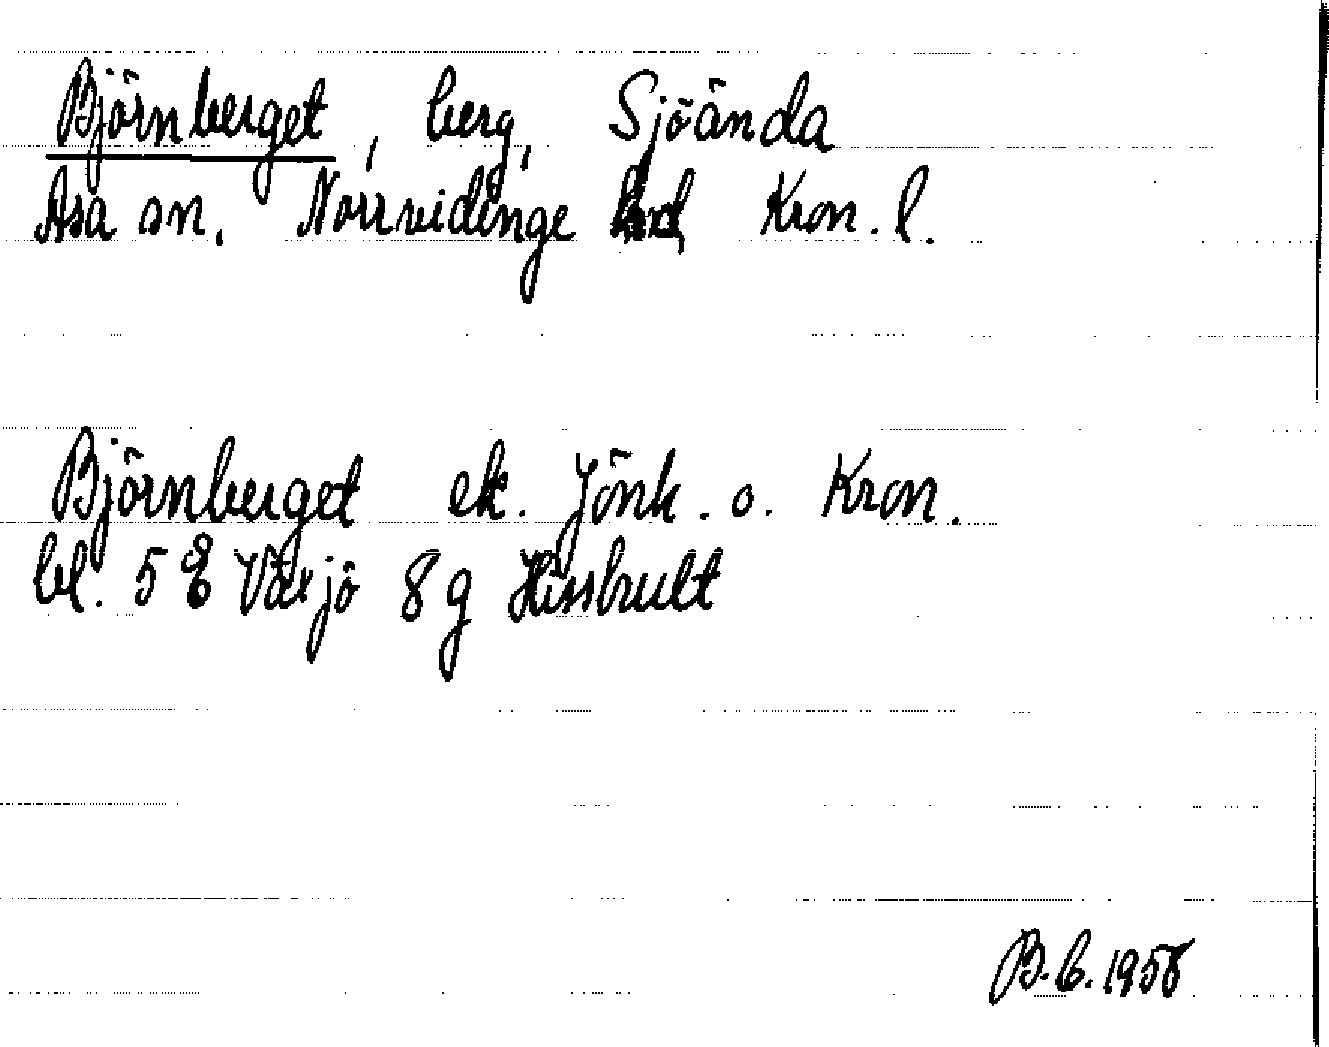 Björnberget, berg, Sjöända
Asa sn. Norrvidinge hd Kron. l.
Björnberget ek. Jönk. o. Kron.
bl. 5 E Växjö 8 g Hisshult
B. C. 1958